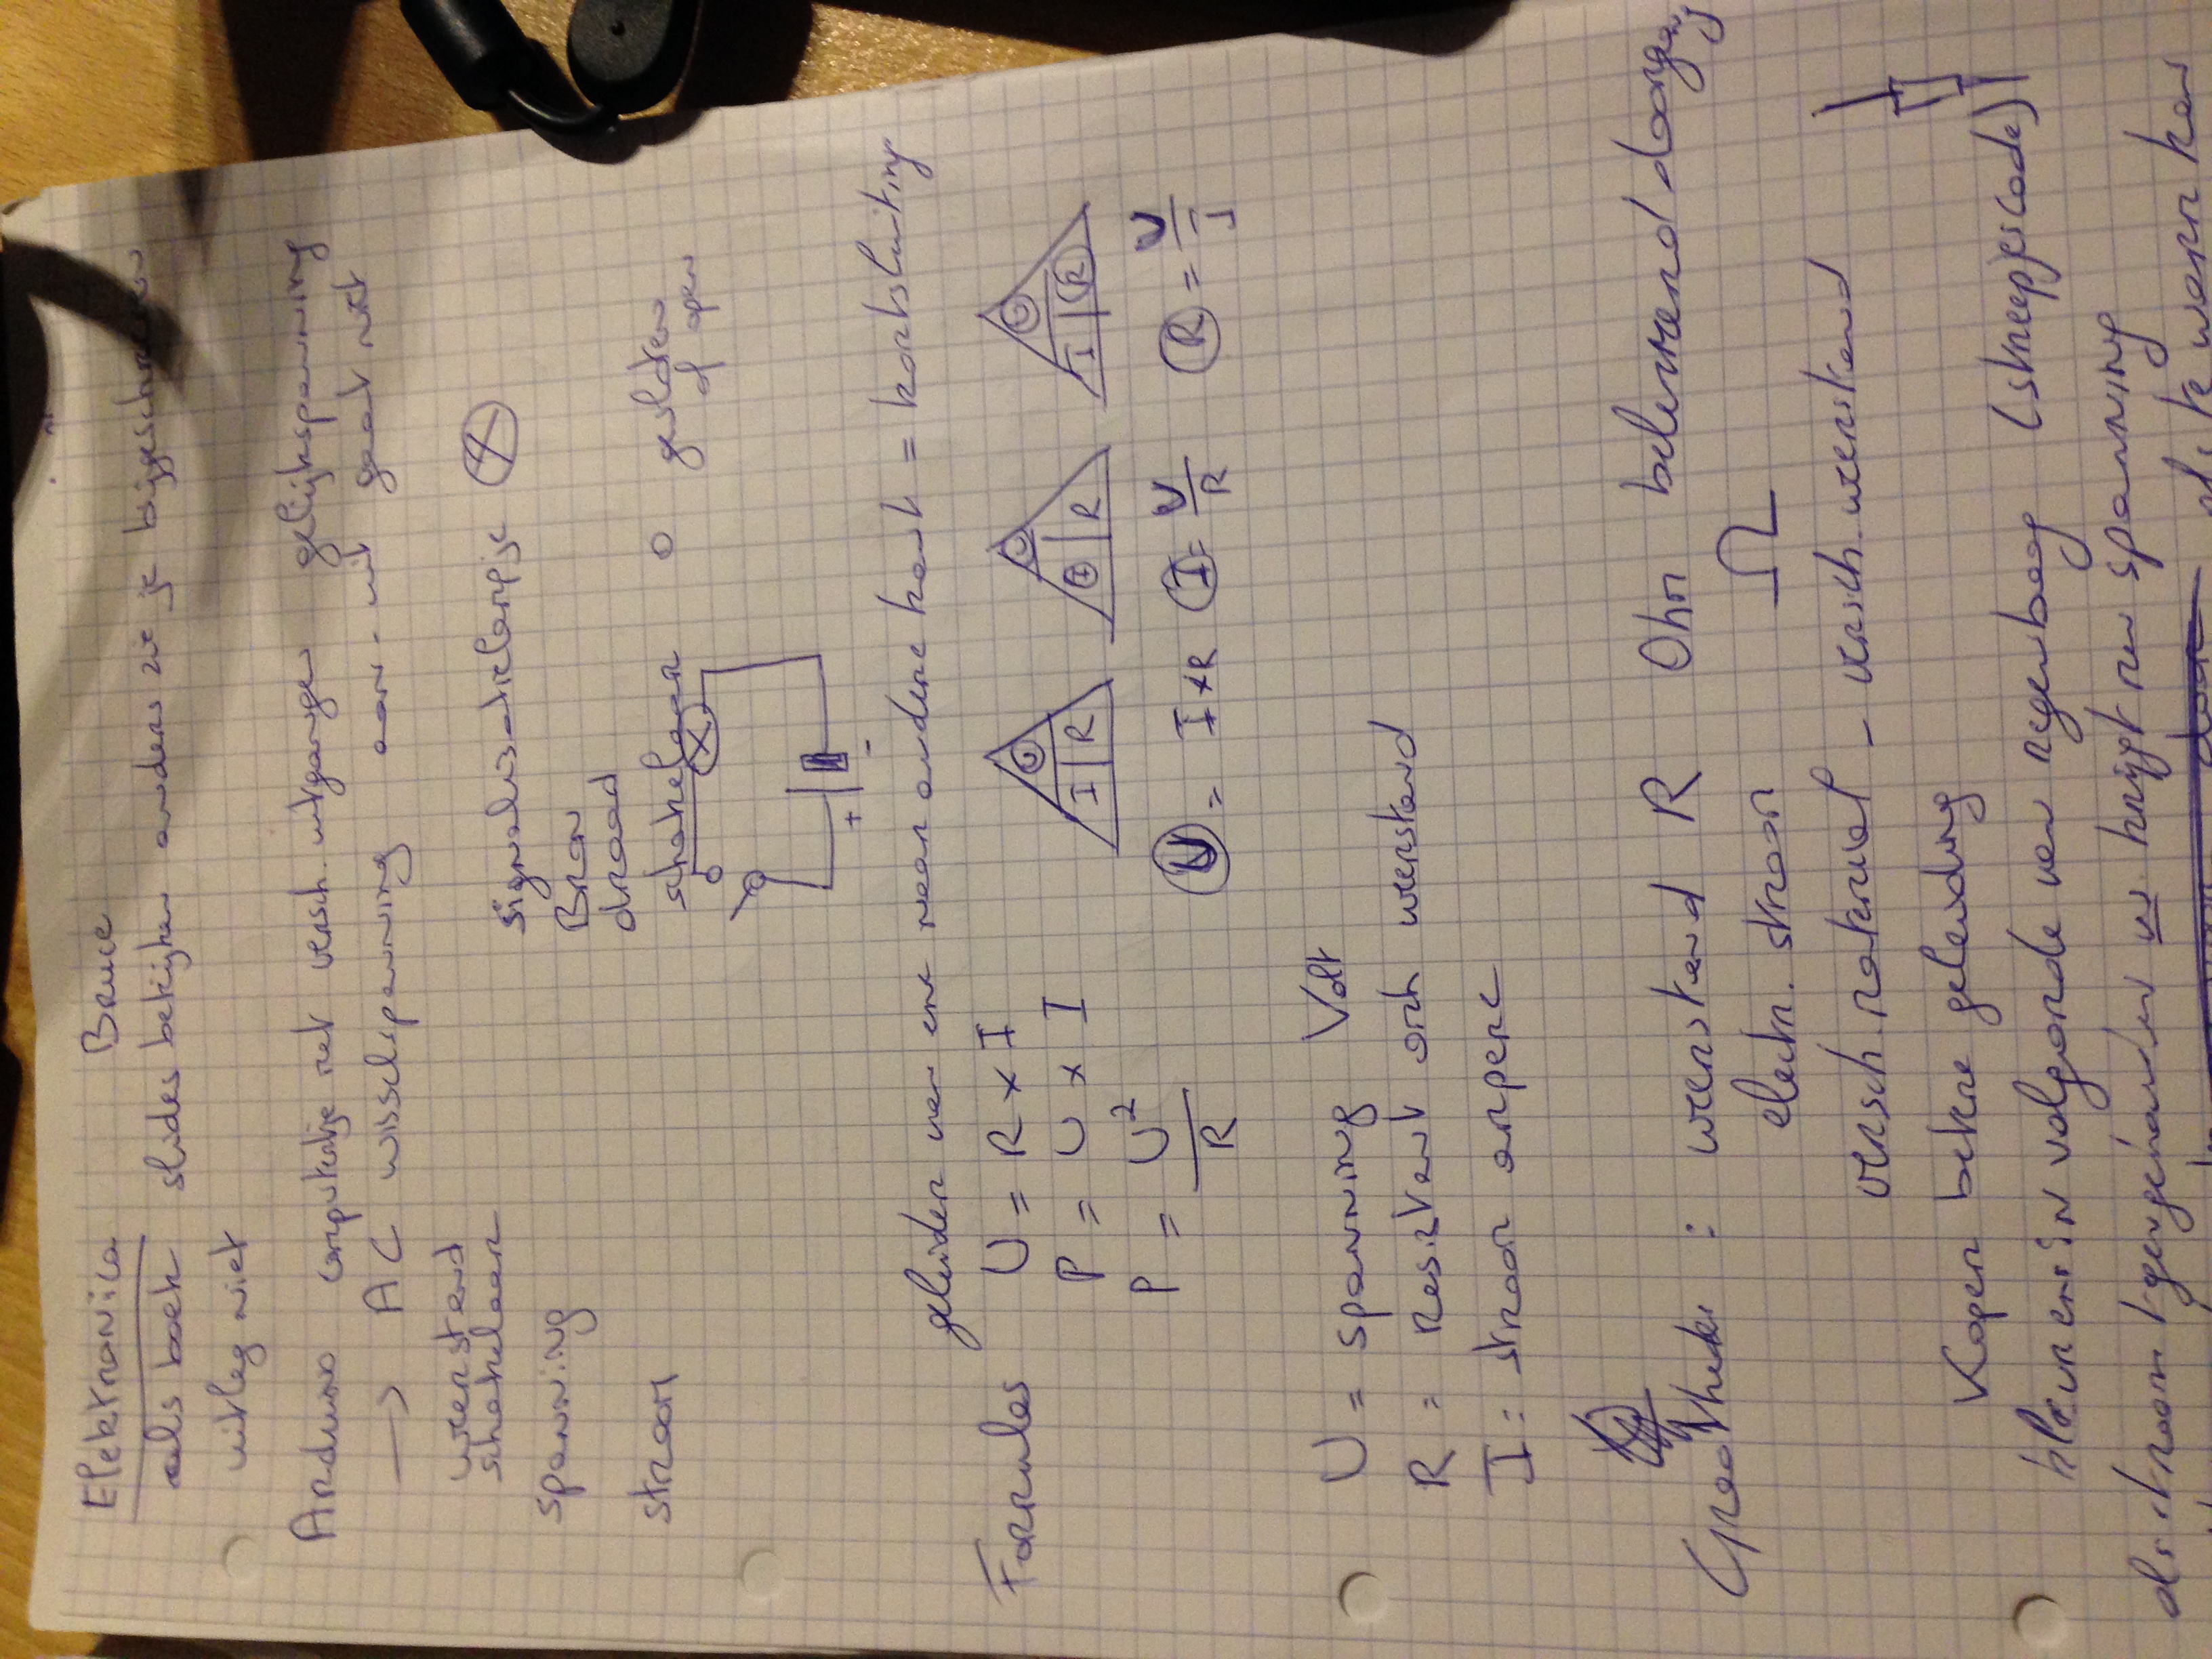 Elektronica Bruce
als boek slides bekijken anders zie je bijgeschreven
uitleg niet
Arduino computertje met versch. uitgangen gelijkspanning
→ AC wisselspanning aan-uit gaat niet
weerstand
schakelaar
signalisatielampje
spanning
Bron
draad
stroom
schakelaar o gesloten
of open
+ -
geleider van ene naar andere kant = kortsluiting
Formules U = R x I
P = U x I
P = U²/R
U I | R
U I | R
U I | R
U = I x R I = U/R R = U/I
U = spanning Volt
R = resistent ohm weerstand
I = stroom ampere
Grootheden : weerstand R Ohm belemmerend doorgang
electr. stroom Ω
versch. materiaal - versch. weerstand
Koper betere geleiding
kleuren in volgorde van regenboog (streepjescode)
als stroom tegengehouden krijgt men spanning
als te warm kan